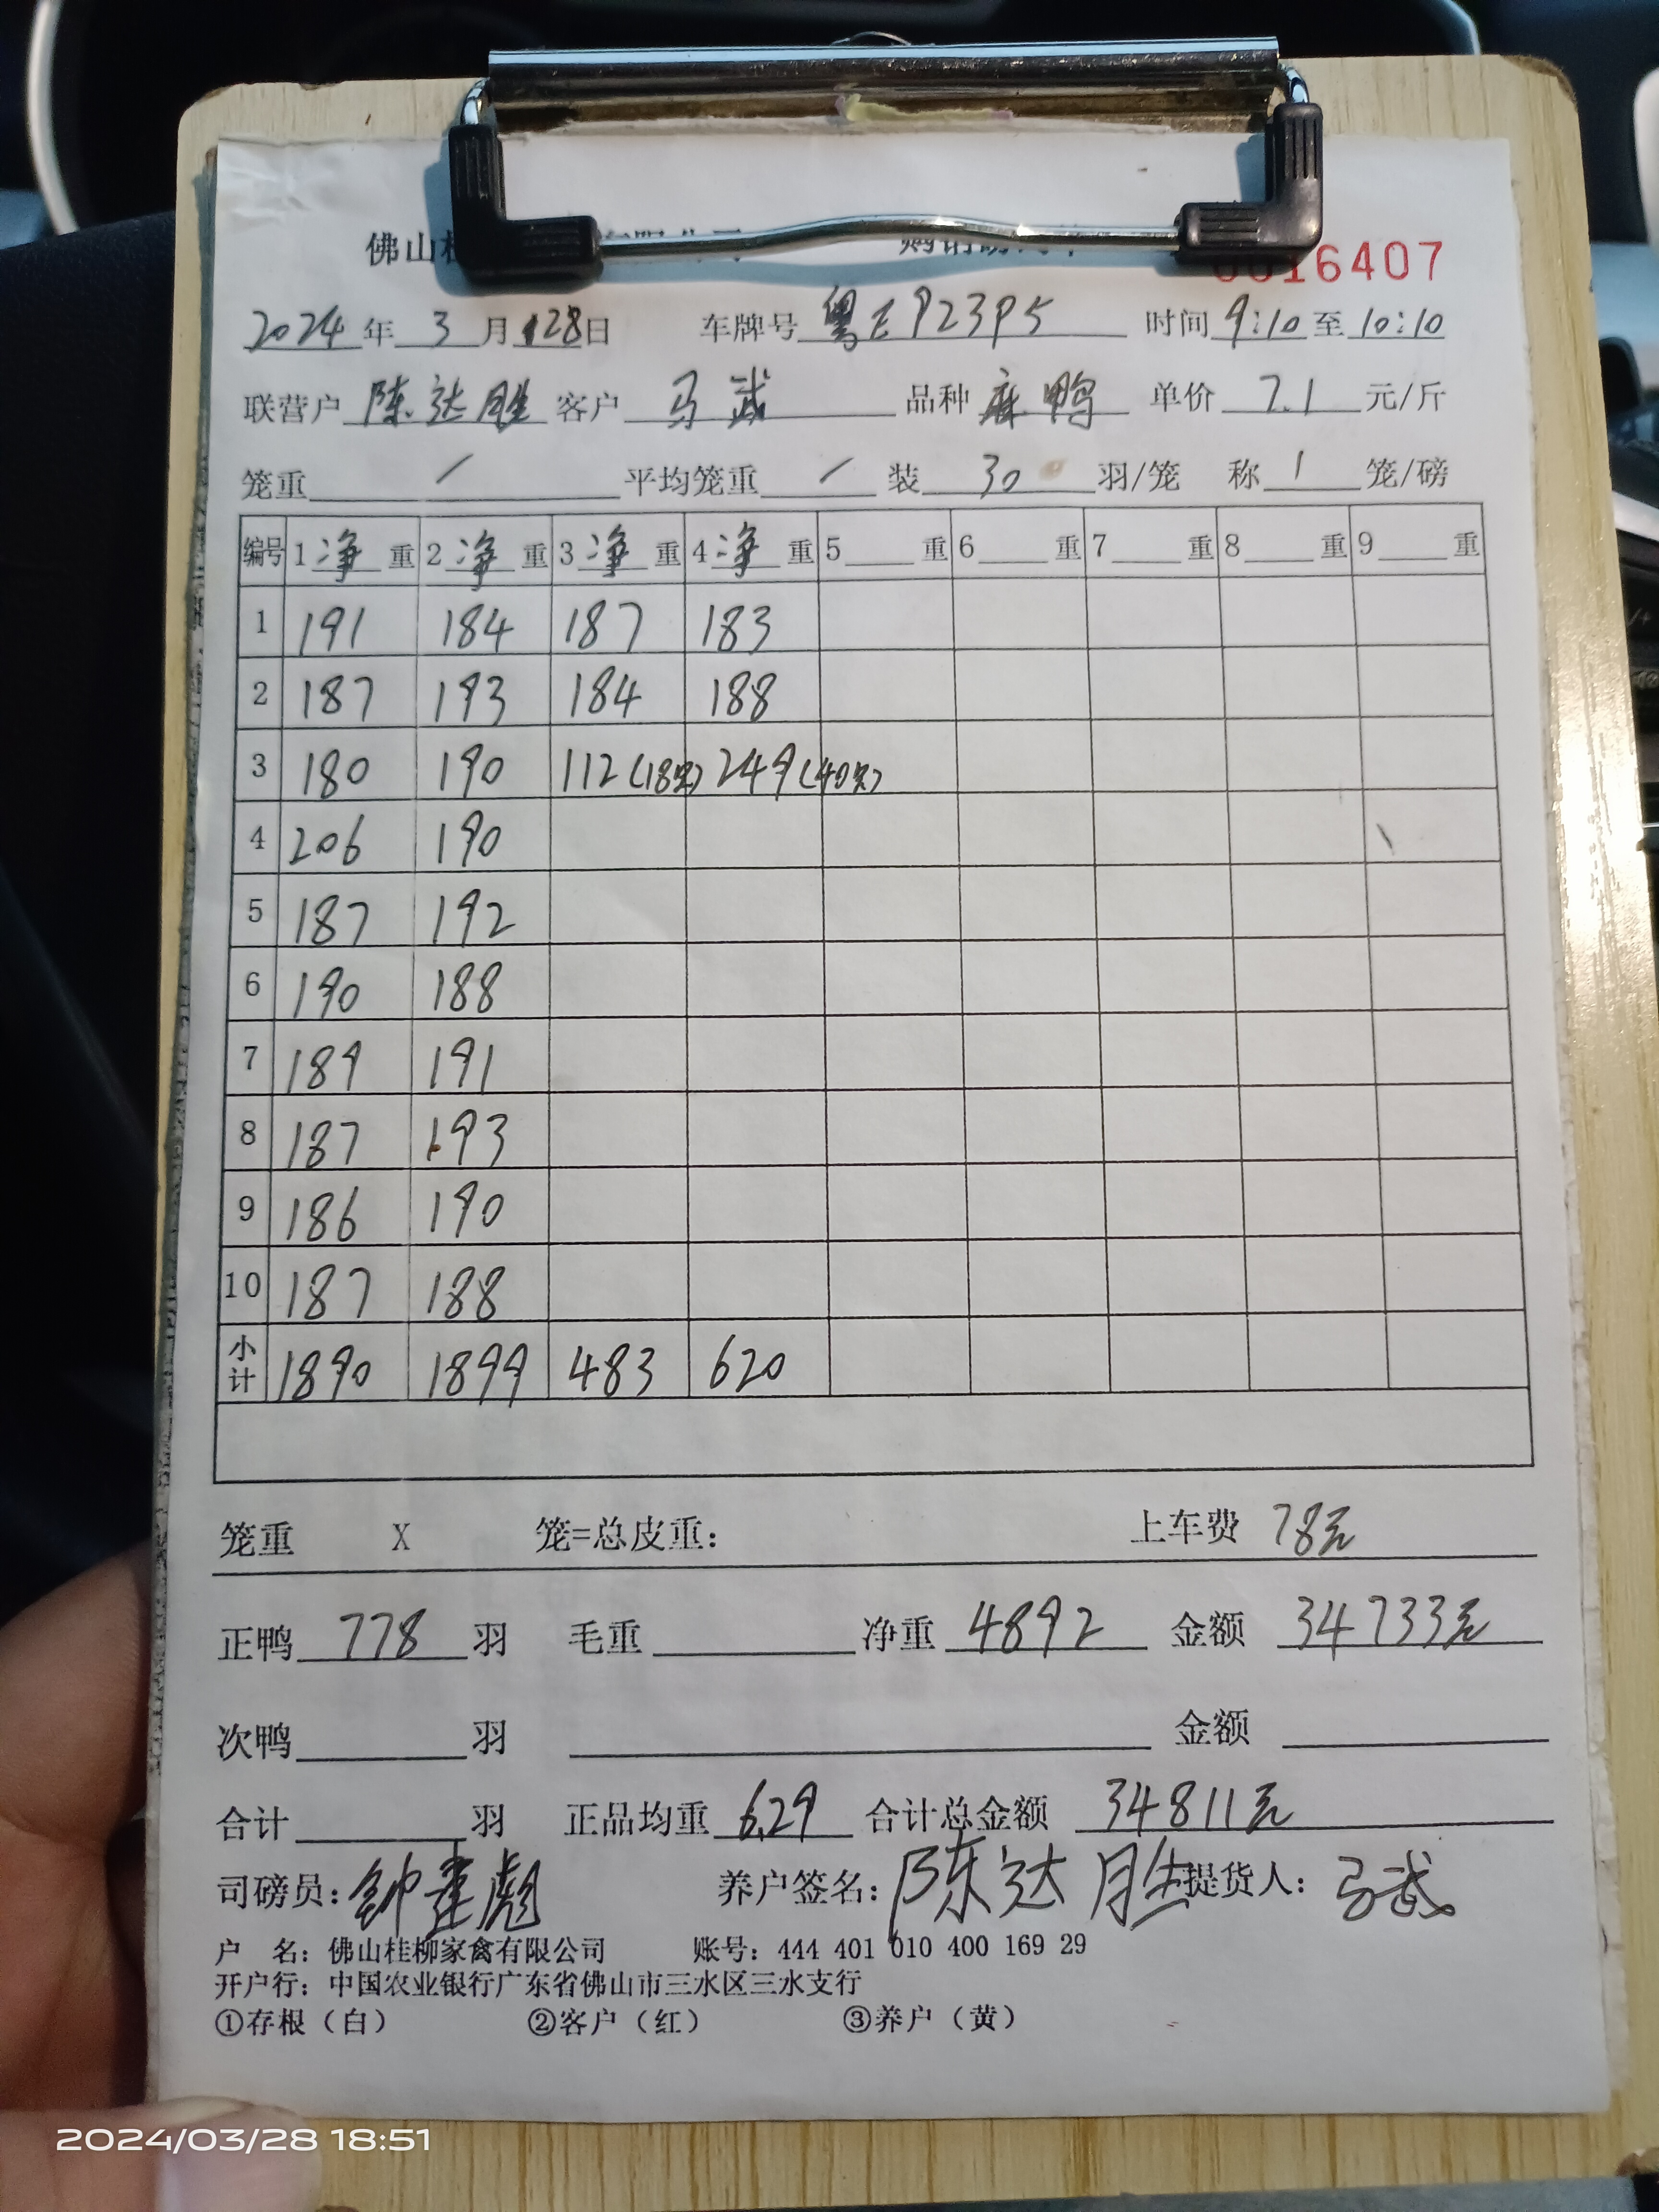 佛山 16407
2024年3月28日 车牌号 粤EP23P5 时间9:10至10:10
联营户 陈达胜 客户 马武 品种 麻鸭 单价 7.1 元/斤
笼重 / 平均笼重 / 装 30 羽/笼 称 1 笼/磅
编号 1净重 2净重 3净重 4净重 5重 6重 7重 8重 9重
1 191 184 187 183
2 187 193 184 188
3 180 190 112(18只) 249(40只)
4 206 190
5 187 192
6 190 188
7 189 191
8 187 193
9 186 190
10 187 188
小计 1890 1899 483 620
笼重 X 笼=总皮重: 上车费 78元
正鸭 778 羽 毛重 净重 4892 金额 34733元
次鸭 羽 金额
合计 羽 正品均重 6.29 合计总金额 34811元
司磅员: 钟建彪 养户签名: 陈达胜 提货人: 马武
户 名: 佛山桂柳家禽有限公司 账号: 444 401 010 400 169 29
开户行: 中国农业银行广东省佛山市三水区三水支行
①存根（白） ②客户（红） ③养户（黄）
2024/03/28 18:51